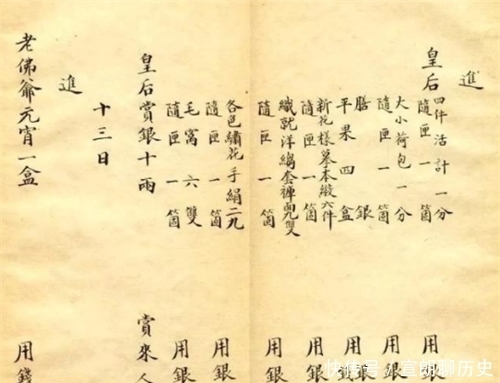 進
皇后
四件活計一分
隨匣一箇
用銀
大小荷包一分
隨匣一箇
用銀
膳銀
平果四盒
用銀
新花樣摹本緞六件
隨匣一箇
用銀
織就洋套褲雙
隨匣一箇
用銀
各色繡花手絹二九
隨匣一箇
用銀
毛窩六雙
隨匣一箇
用銀
皇后賞銀十兩
賞來人
十三日
進
老佛爺元宵一盒
用錢
快传号／宣朗聊历史